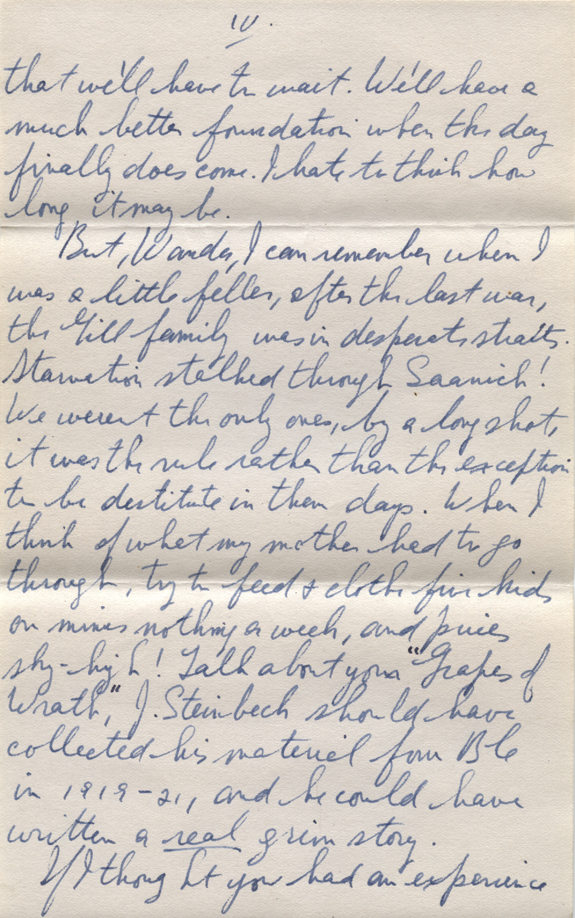 IV.
that we'll have to wait. We'll have a
much better foundation when the day
finally does come. I hate to think how
long it may be.
But, Wanda, I can remember when I
was a little feller, after the last war,
the Gill family was in desperate straits.
Starvation stalked through Saanich!
We weren't the only ones, by a long shot,
it was the rule rather than the exception
to be destitute in them days. When I
think of what my mother had to go
through, try to feed & clothe five kids
on minus nothing a week, and prices
sky-high! Talk about your "Grapes of
Wrath," J. Steinbeck should have
collected his material from
in 1919-21, and he could have
written a real grim story.
If I thought you had an experience